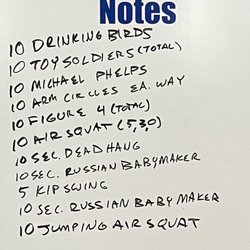 Notes
10 DRINKING BIRDS
10 TOY SOLDIERS (TOTAL)
10 MICHAEL PHELPS
10 ARM CIRCLES EA. WAY
10 FIGURE 4 (TOTAL)
10 AIR SQUAT (5,3,0)
10 SEC. DEAD HANG
10 SEC. RUSSIAN BABYMAKER
5 KIP SWING
10 SEC. RUSSIAN BABY MAKER
10 JUMPING AIR SQUAT